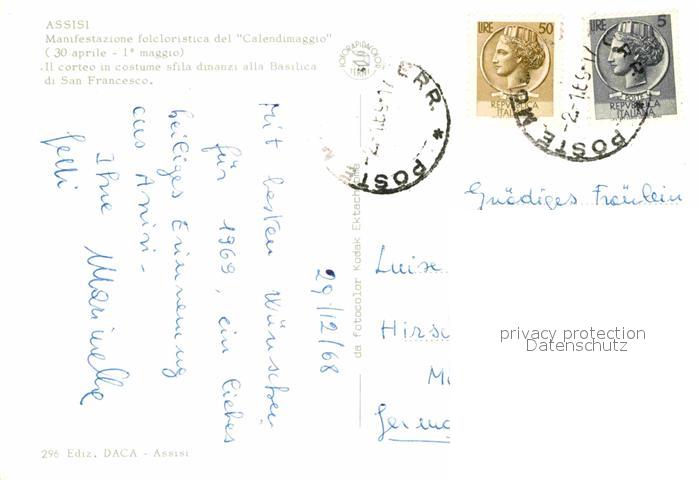 ASSISI
Manifestazione folcloristica del "Calendimaggio"
( 30 aprile - 1° maggio)
Il corteo in costume sfila dinanzi alla Basilica
di San Francesco.
LIRE 50
REPVBBLICA
ITALIANA
LIRE 5
POSTE
REPVBBLICA
ITALIANA
ERR. * POSTE
29/12/68
Mit besten Wünschen
für 1969, ein liebes
heiliges Erinnerung
aus Assisi -
Ihre Marinella
Gnädiges Fräulein
Luise
Hirsc
Germa
da fotocolor Kodak Ektachrome
privacy protection
Datenschutz
296 Ediz. DACA - Assisi